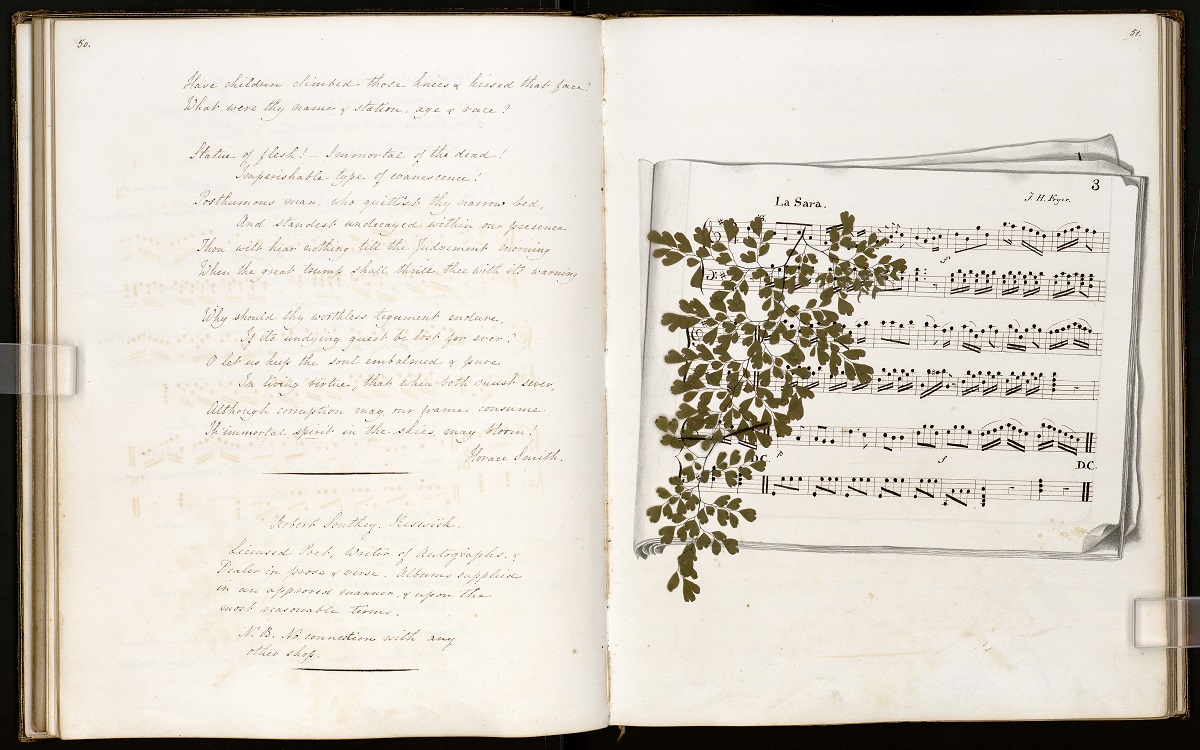 50.
Have children climbed those knees & kissed that face?
What were thy name & station, age & race?
Statue of flesh! – Immortal of the dead!
Imperishable type of evanescence!
Posthumous man, who quittest thy narrow bed,
And standest undecayed within our presence
Thou wilt hear nothing till the Judgement morning
When the great trump shall thrill thee with its warning
Why should thy worthless tegument endure,
If its undying guest be lost for ever?
O let us keep the soul embalmed & pure
In living virtue; that when both must sever,
Although corruption may our frame consume
Th' immortal spirit in the skies may bloom!
Horace Smith.
Robert Southey. Keswick.
Licensed Poet, Writer of Autographs, &
Dealer in prose & verse. Albums supplied
in an approved manner, & upon the
most reasonable terms.
N.B. No connection with any
other shop.
51.
1
3
La Sara.
J. H. Fryer.
P
D.C.
P
f
D.C.